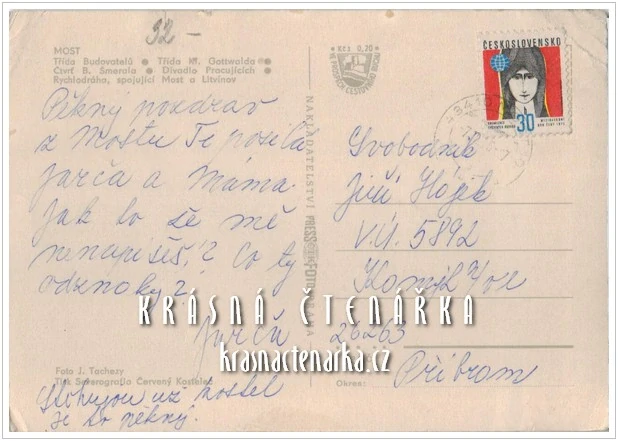 92 -
MOST
Třída Budovatelů ● Třída Kl. Gottwalda ●
Čtvrť B. Šmerala ● Divadlo Pracujících ●
Rychlodráha, spojující Most a Litvínov
Pěkný pozdrav
z Mostu Ti posílá
Jarča a Máma.
Jak to že mě
nenapíšeš? Co ty
odznaky?
Jarča
Foto J. Tachezy
Tisk Severografia Červený Kostelec
už kostel
je to pěkný.
NAKLADATELSTVÍ PRESSFOTO PRAHA
Kčs 0,20
ČESKOSLOVENSKO
30
Svobodník
Jiří Hájek
V.Ú. 5892
26263
Okres:
Příbram
KRÁSNÁ ČTENÁŘKA
krasnactenarka.cz